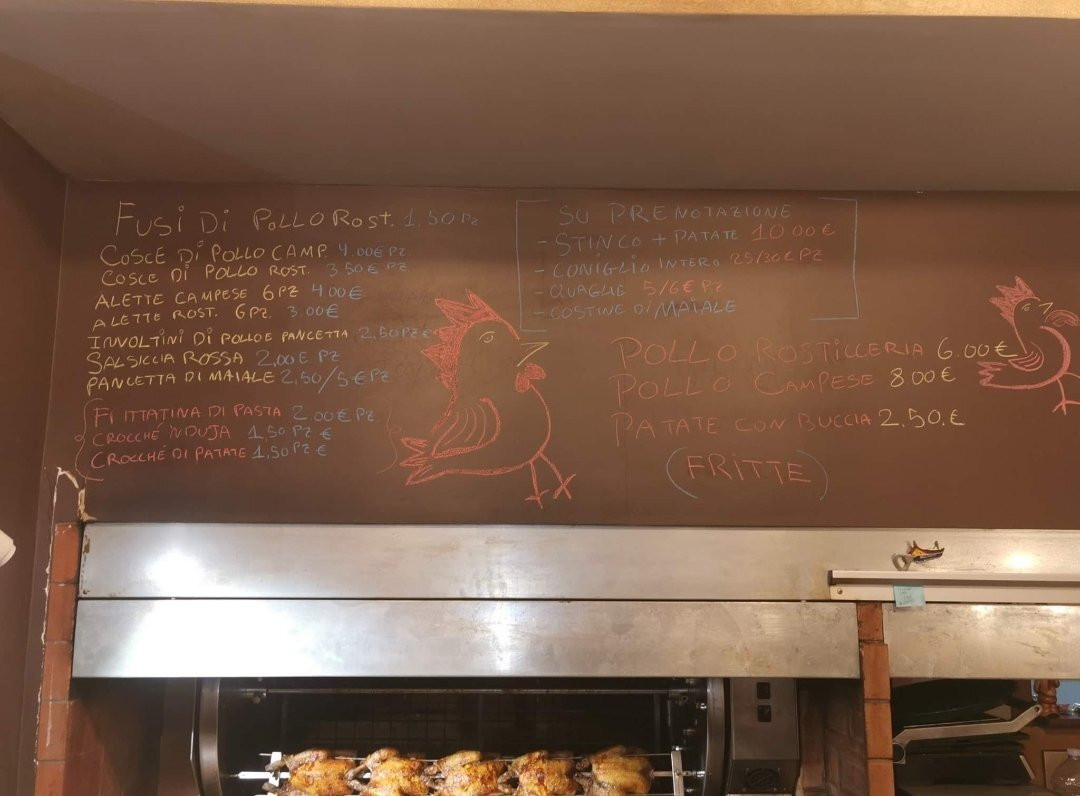 FUSI DI POLLO ROST. 1,50 PZ
COSCE DI POLLO CAMP. 4.00€ PZ
COSCE DI POLLO ROST. 3 50€ PZ
ALETTE CAMPESE 6PZ 4 00€
ALETTE ROST. 6PZ. 3.00€
INVOLTINI DI POLLO E PANCETTA 2,50PZ€
SALSICCIA ROSSA 2,00E PZ
PANCETTA DI MAIALE 2,50/5€PZ
FRITTATINA DI PASTA 2 00€ PZ.
CROCCHÉ 'NDUJA 1,50 PZ €
CROCCHÉ DI PATATE 1,50 PZ €
SU PRENOTAZIONE
- STINCO + PATATE 10 00€
- CONIGLIO INTERO 25/30€ PZ
- QUAGLIE 5/6€ PZ
- COSTINE DI MAIALE
POLLO ROSTICCERIA 6.00€
POLLO CAMPESE 8 00€
PATATE CON BUCCIA 2.50.€
(FRITTE)